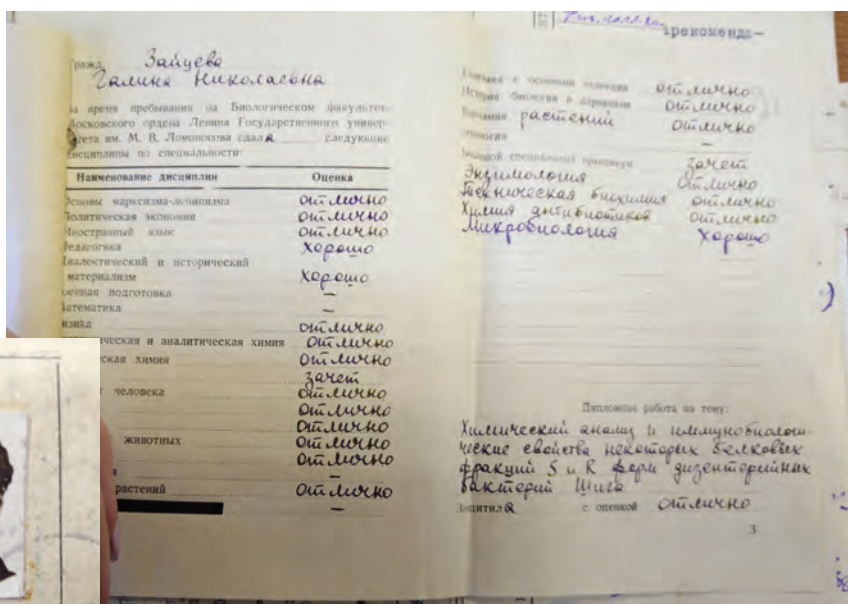 Гражд. Зайцева
Галина Николаевна
за время пребывания на Биологическом факультет-
Московского ордена Ленина Государственного универ-
ситета им. М. В. Ломоносова сдала следующие
дисциплины по специальности:
Наименование дисциплин Оценка
Основы марксизма-ленинизма отлично
Политическая экономия отлично
Иностранный язык отлично
Педагогика хорошо
Диалектический и исторический
материализм хорошо
Военная подготовка —
Математика —
Физика отлично
ческая и аналитическая химия отлично
ческая химия отлично
зачет
человека отлично
отлично
отлично
животных отлично
отлично
я
растений отлично
—
рекоменда—
с основами селекции отлично
История биологии и дарвинизм отлично
растений отлично
—
Большой специальный практикум зачет
Энзимология отлично
Техническая биохимия отлично
Химия антибиотиков отлично
Микробиология хорошо
Дипломная работа на тему:
Химический анализ и иммунобиологи-
ческие свойства некоторых белковых
фракций S и R форм дизентерийных
бактерий Шига
Защитила с оценкой отлично
3